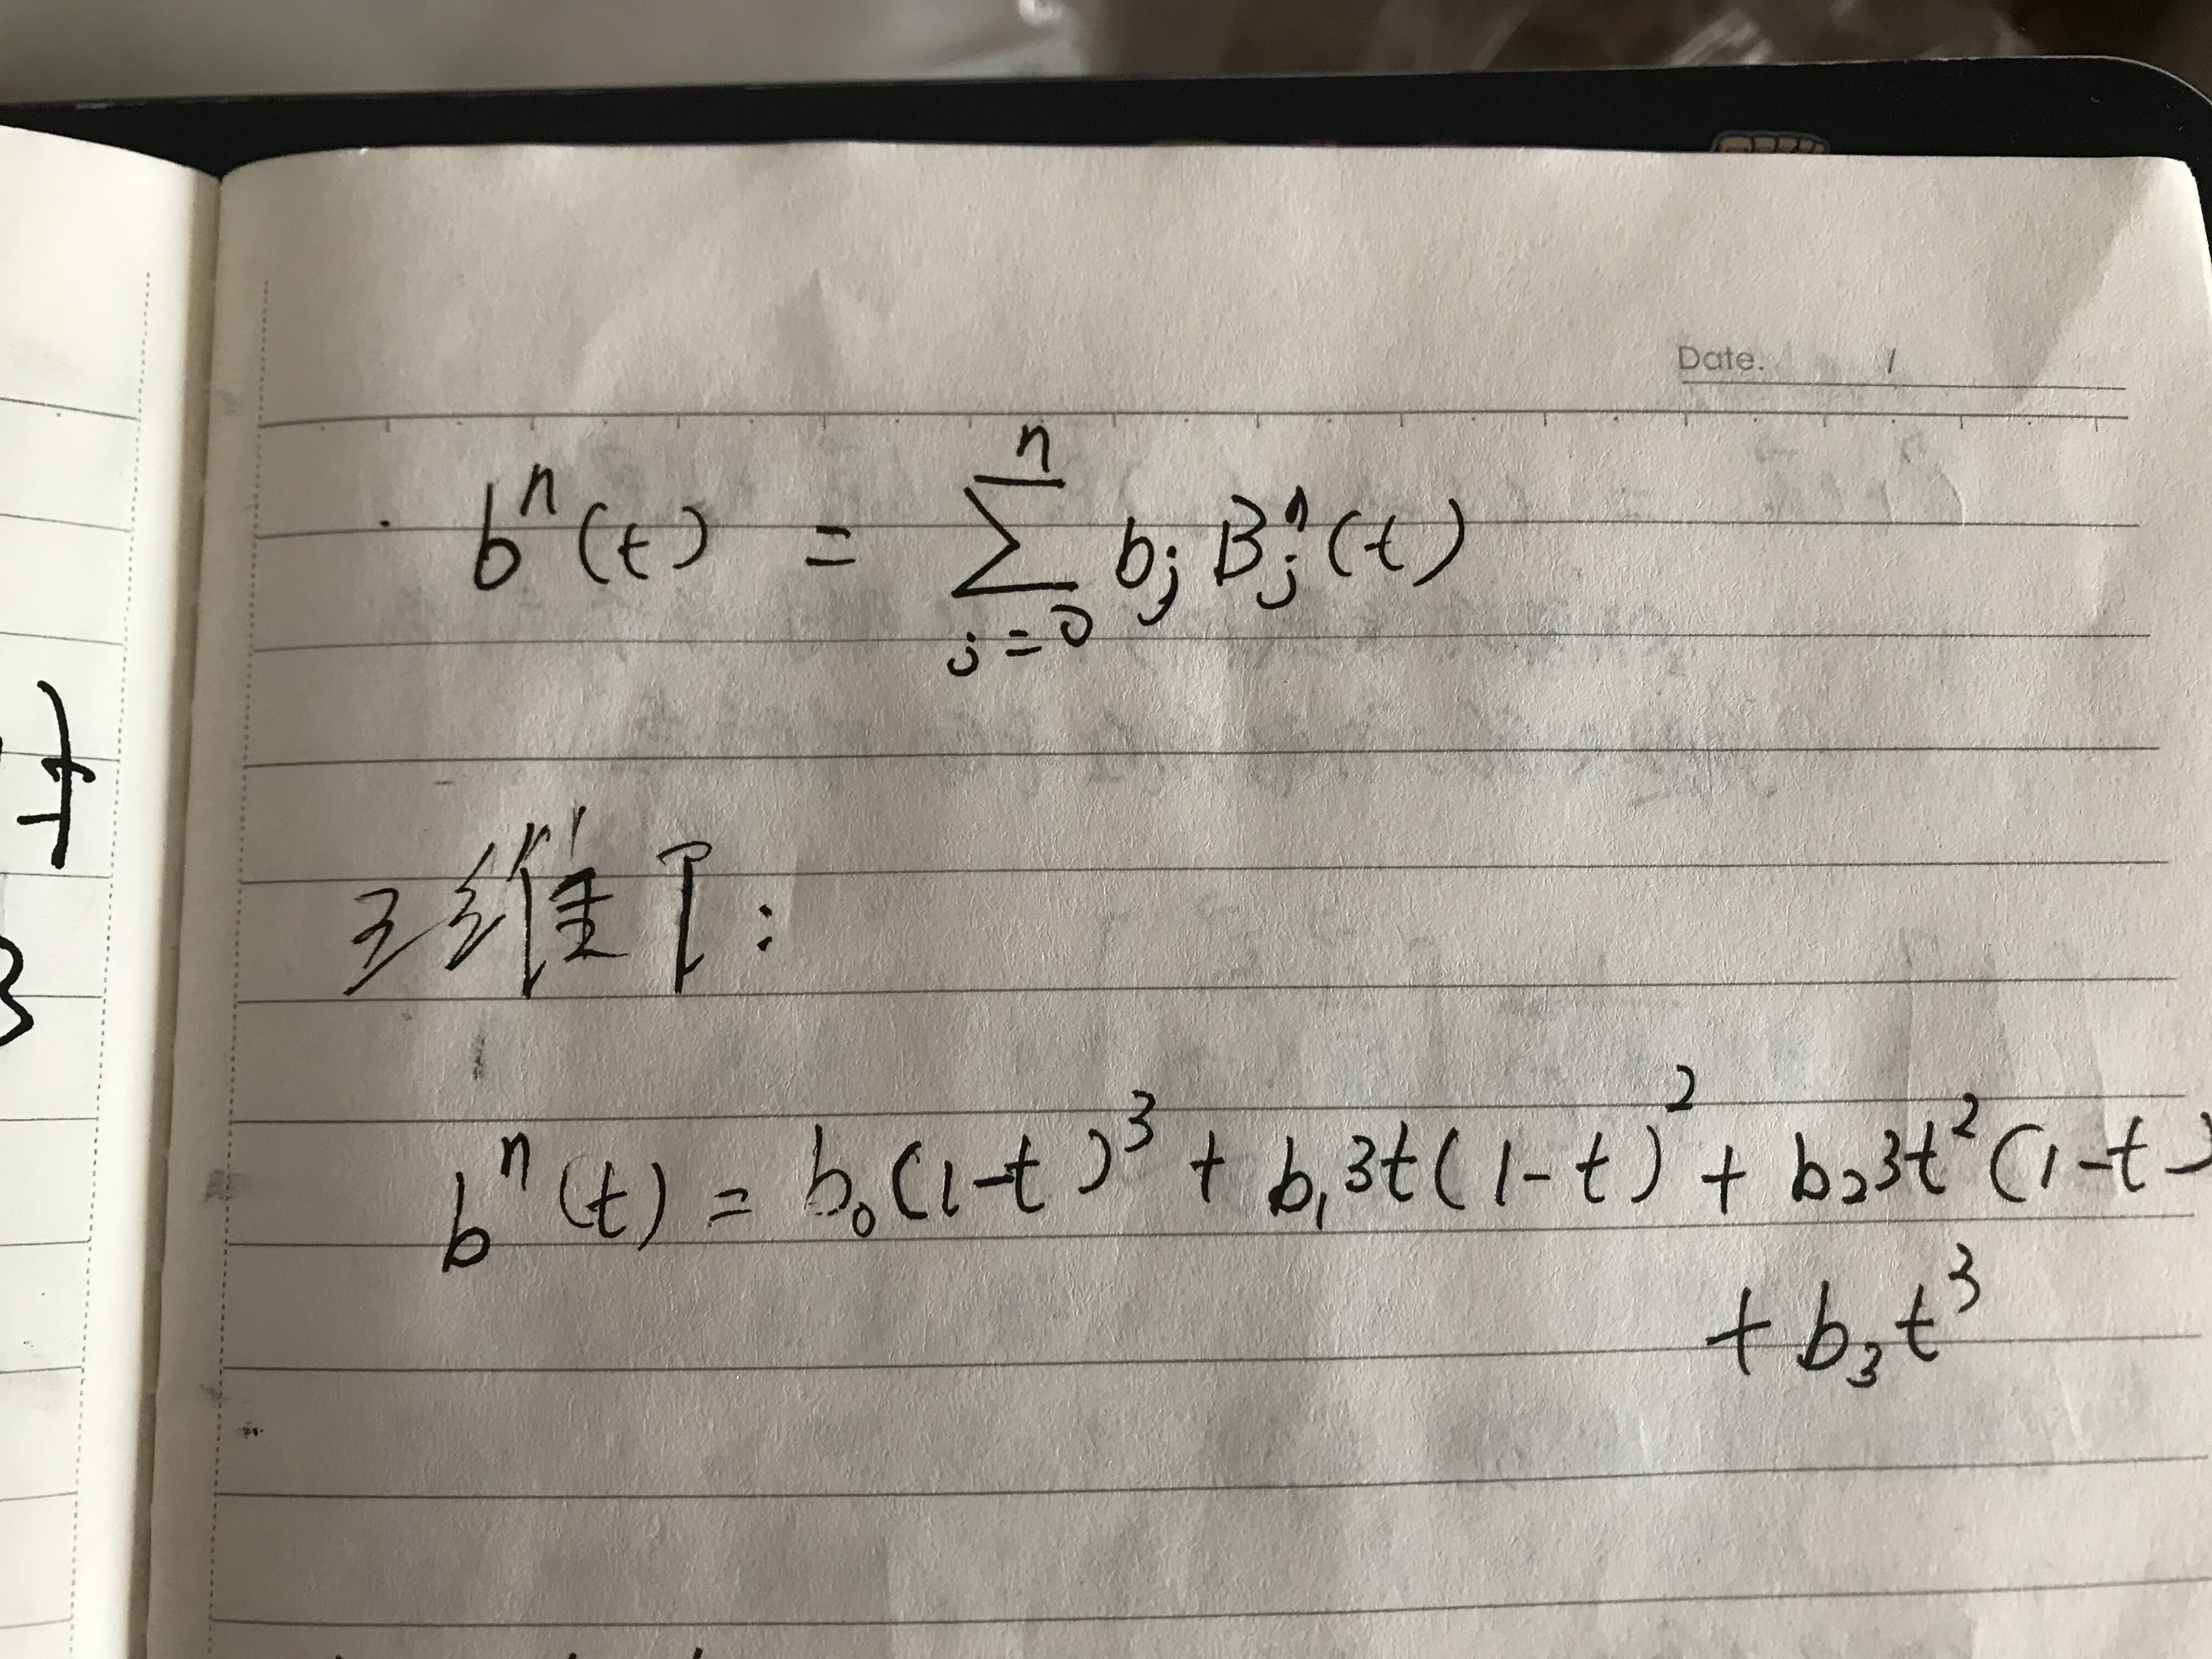 Date. /
bⁿ(t) = ∑ⁿⱼ₌₀ bⱼ Bⱼⁿ(t)
3维下:
bⁿ(t) = b₀(1-t)³ + b₁3t(1-t)² + b₂3t²(1-t)
+ b₃t³